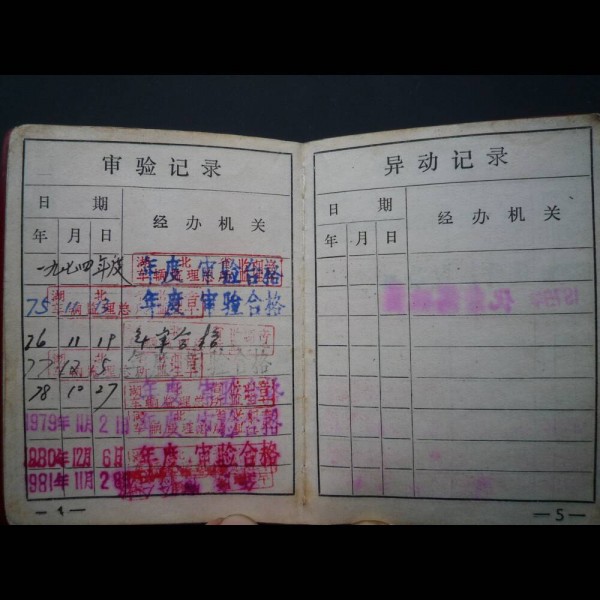 审验记录
日 期
经办机关
年 月 日
一九七四年度 年度 审验合格
75 11 年度 审验合格
76 11 19 年审合格
77 12 5 年度 审验合格
78 10 27 年度 审验合格
1979年11月2日 年度 审验合格
1980年12月6日 年度 审验合格
1981年11月2
异动记录
日 期
经办机关
年 月 日
—5—